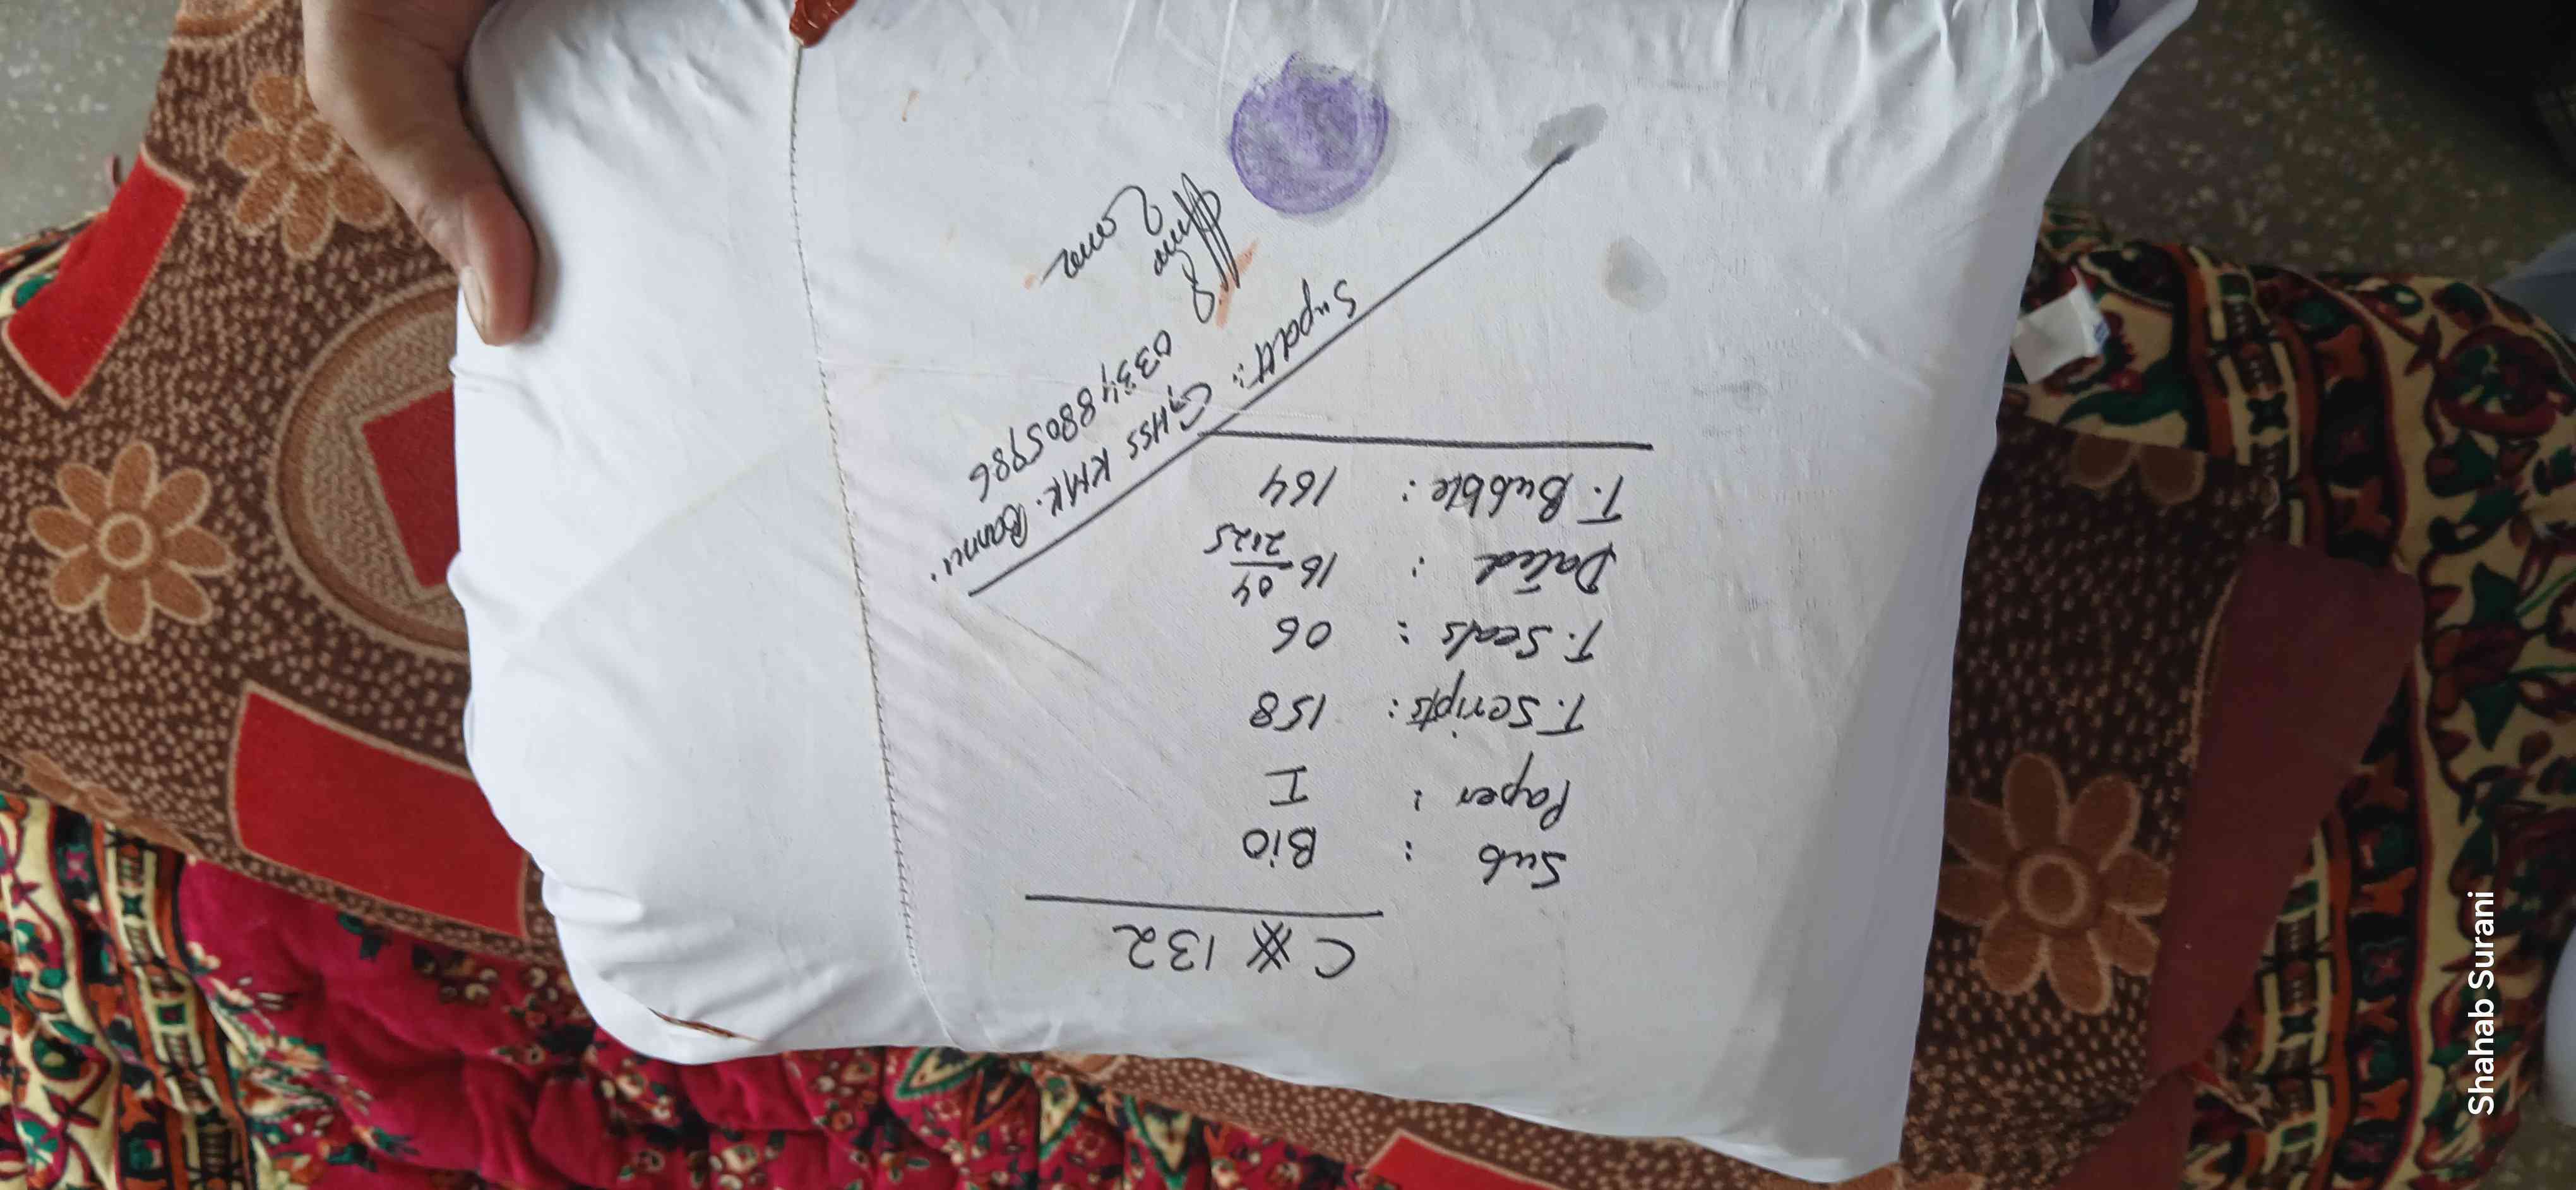 C# 132
Sub : Bio
Paper : I
T. Scripts : 158
T. Seals : 06
Dated : 16/04 2125
T. Bubble : 164
Supdtt: GHSS KMK. Bannu.
0334 8805986
Shahab Surani